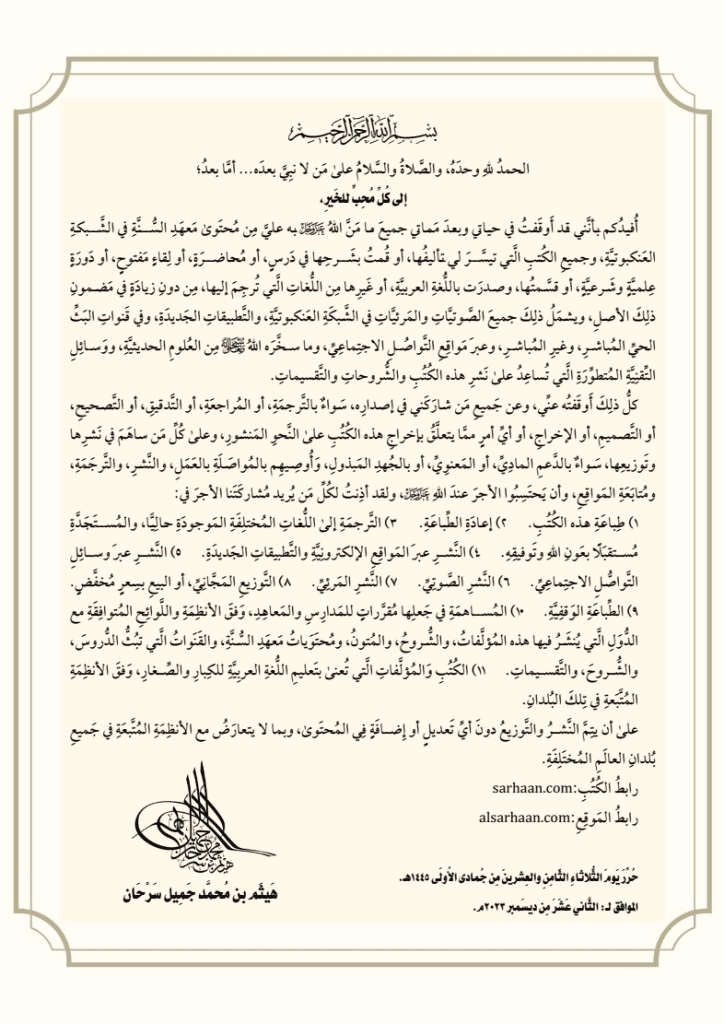 بسم الله الرحمن الرحيم
الحمدُ للهِ وحدَهُ، والصَّلاةُ والسَّلامُ علىٰ مَن لا نبِيَّ بعدَه... أمَّا بعدُ؛
إلى كُلِّ مُحِبٍّ للخَيرِ،
أُفيدُكم بأنَّني قد أَوقَفتُ في حياتي وبعدَ مَماتي جميعَ ما مَنَّ اللهُ ﷻ به عليَّ مِن مُحتَوىٰ مَعهَدِ السُّنَّةِ في الشَّبكةِ
العَنكبوتيَّةِ، وجميعِ الكُتبِ الَّتي تيسَّرَ لي تأليفُها، أو قُمتُ بشَرحِها في دَرسٍ، أو مُحاضرَةٍ، أو لِقاءٍ مَفتوحٍ، أو دَورَةٍ
عِلميَّةٍ وشَرعيَّةٍ، أو قسَّمتُها، وصدَرَت باللُّغةِ العربيَّةِ، أو غَيرِها مِن اللُّغاتِ الَّتي تُرجِمَ إليها، مِن دونِ زيادَةٍ في مَضمونِ
ذلِكَ الأصلِ، ويشمَلُ ذلِكَ جميعَ الصَّوتيَّاتِ والمَرئيَّاتِ في الشَّبكَةِ العَنكبوتيَّةِ، والتَّطبيقاتِ الجَديدَةِ، وفي قَنواتِ البَثِّ
الحيِّ المُباشرِ، وغيرِ المُباشرِ، وعبرَ مَواقِعِ التَّواصُلِ الاجتِماعِيِّ، وما سخَّرَه اللهُ ﷻ مِن العُلومِ الحديثيَّةِ، ووَسائِلِ
التِّقنِيَّةِ المُتطوِّرَةِ الَّتي تُساعِدُ علىٰ نَشرِ هذه الكُتُبِ والشُّروحاتِ والتَّقسيماتِ.
كلُّ ذلِكَ أَوقَفتُه عنِّي، وعن جَميعِ مَن شارَكَني في إصدارِه، سَواءٌ بالتَّرجمَةِ، أو المُراجعَةِ، أو التَّدقيقِ، أو التَّصحيحِ،
أو التَّصميمِ، أو الإخراجِ، أو أيِّ أمرٍ ممَّا يتعلَّقُ بإخراجِ هذه الكُتُبِ علىٰ النَّحوِ المَنشورِ، وعلىٰ كُلِّ مَن ساهَمَ في نَشرِها
وتَوزيعِها، سَواءٌ بالدَّعمِ المادِيِّ، أو المَعنوِيِّ، أو بالجُهدِ المَبذولِ، وَأُوصِيهِم بالمُواصَلَةِ بالعَمَلِ، والنَّشرِ، والتَّرجَمَةِ،
ومُتابَعَةِ المَواقِعِ، وأن يَحتَسِبُوا الأجرَ عندَ اللهِ ﷻ، ولقد أذِنتُ لكُلِّ مَن يُريد مُشاركَتَنا الأجرَ في:
١) طِباعَةِ هذه الكُتُبِ. ٢) إعادَةِ الطِّباعَةِ. ٣) التَّرجمَةِ إلىٰ اللُّغاتِ المُختلِفَةِ المَوجودَةِ حاليًّا، والمُستَجَدَّةِ
مُستقبَلًا بعَونِ اللهِ وتَوفيقِهِ. ٤) النَّشرِ عبرَ المَواقِعِ الإلكترونيَّةِ والتَّطبيقاتِ الجَديدَةِ. ٥) النَّشرِ عبرَ وسائِلِ
التَّواصُّلِ الاجتِماعِيِّ. ٦) النَّشرِ الصَّوتِيِّ. ٧) النَّشرِ المَرئِيِّ. ٨) التَّوزيعِ المَجَّانِيِّ، أو البيعِ بِسِعرٍ مُخفَّضٍ.
٩) الطِّباعَةِ الوَقفِيَّةِ. ١٠) المُساهمَةِ في جَعلِها مُقرَّراتٍ للمَدارِسِ والمَعاهِدِ، وَفقَ الأنظِمَةِ واللَّوائحِ المُتوافِقَةِ مع
الدُّوَلِ الَّتي يُنشَرُ فيها هذه المُؤلَّفاتُ، والشُّروحُ، والمُتونُ، ومُحتَوَياتُ مَعهَدِ السُّنَّةِ، والقَنَواتُ الَّتي تبُثُّ الدُّروسَ،
والشُّروحَ، والتَّقسيماتِ. ١١) الكُتُبِ وَالمُؤلَّفاتِ الَّتي تُعنىٰ بتَعليمِ اللُّغةِ العربيَّةِ للكِبارِ والصِّغارِ، وَفقَ الأنظِمَةِ
المُتَّبَعَةِ في تِلكَ البُلدانِ.
علىٰ أن يتِمَّ النَّشرُ والتَّوزيعُ دونَ أيِّ تَعديلٍ أو إضافَةٍ فِي المُحتَوىٰ، وبما لا يتعارَضُ مع الأنظِمَةِ المُتَّبَعَةِ في جَميعِ
بُلدانِ العالَمِ المُختَلِفَةِ.
رابطُ الكُتُبِ:sarhaan.com
رابطُ المَوقِعِ:alsarhaan.com
حُرِّرَ يَومَ الثُّلاثاءِ الثَّامِنِ والعِشرينَ مِن جُمادى الأُولَى ١٤٤٥هـ.
الموافق لـ: الثَّاني عَشَرَ مِن ديسَمبر ٢٠٢٣م.
هَيثَم بن مُحمَّد جَمِيل سَرْحَان